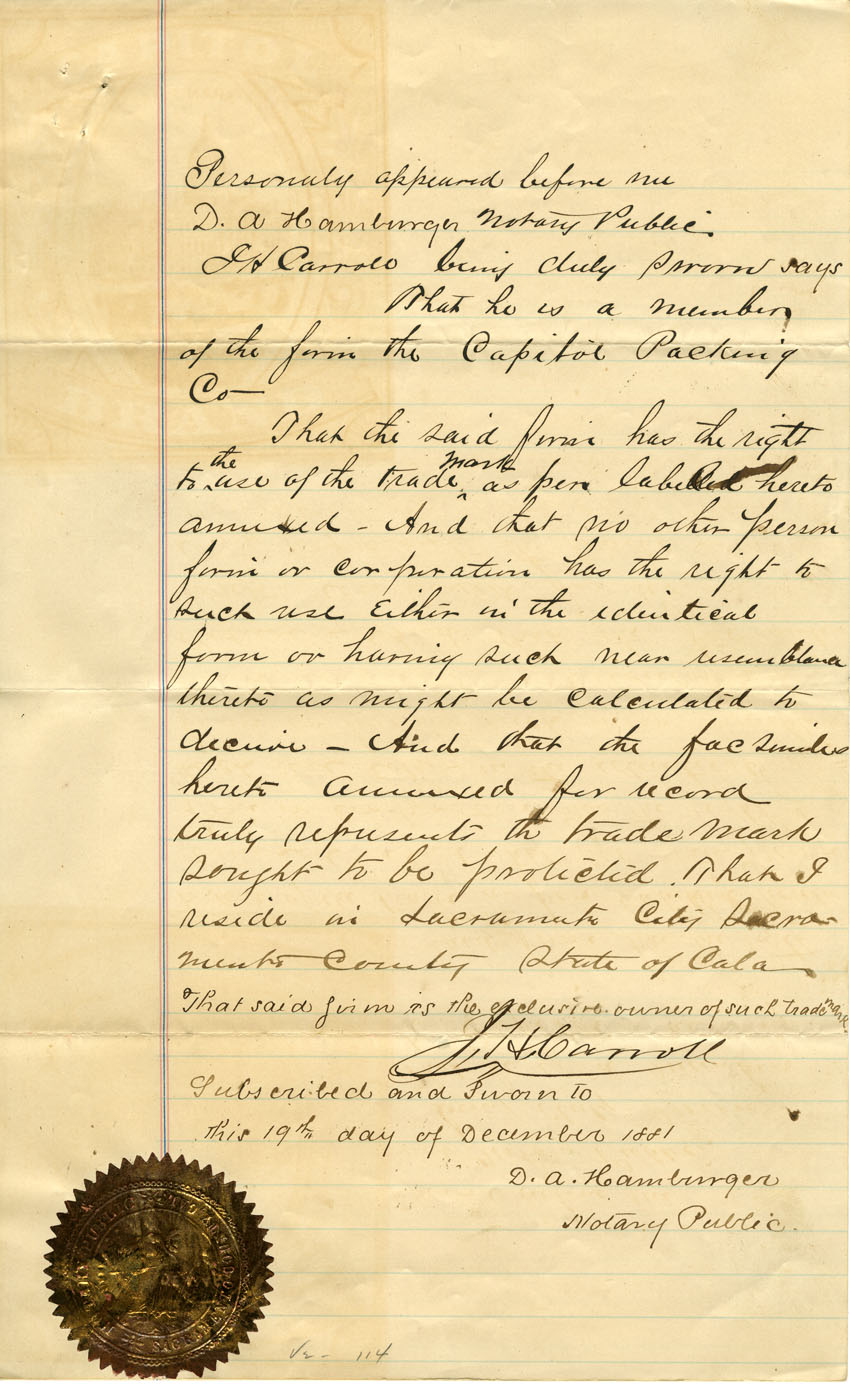 Personaly appeared before me
D. A Hamburger Notary Public
J H Carroll being duly sworn says
That he is a member
of the firm the Capitol Packing
Co—
That the said firm has the right
to the use of the trade mark as per label hereto
annexed - And that no other person
firm or corporation has the right to
such use Either in the identical
form or having such near resemblance
thereto as might be calculated to
deceive — And that the facsimiles
hereto annexed for record
truly represents the trade mark
sought to be protected. That I
reside in Sacramento City Sacra-
mento County State of Cala
That said firm is the exclusive owner of such trade mark.
J H Carroll
Subscribed and Sworn to
this 19th day of December 1881
D. A. Hamburger
Notary Public.
SACRAMENTO
114